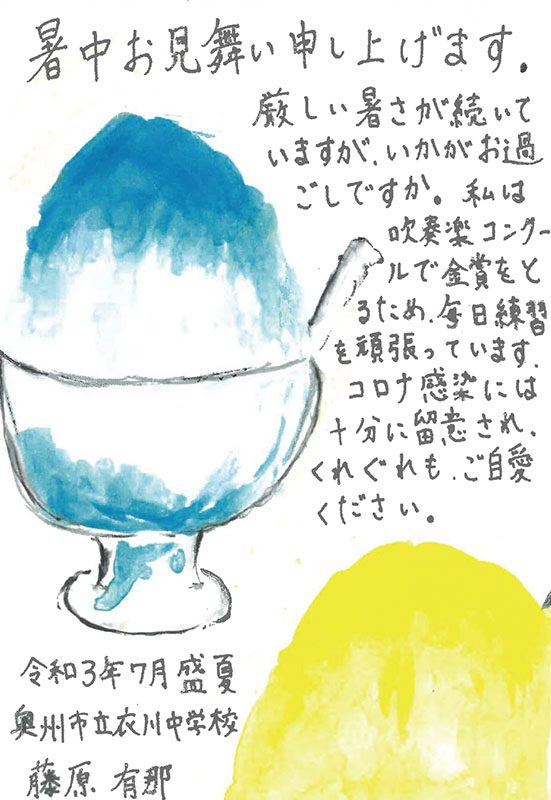 暑中お見舞い申し上げます.
厳しい暑さが続いて
いますが、いかがお過
ごしですか。私は
吹奏楽コンクー
ルで金賞をと
るため、毎日練習
を頑張っています.
コロナ感染には
十分に留意され、
くれぐれも、ご自愛
ください。
令和3年7月盛夏
奥州市立衣川中学校
藤原有那